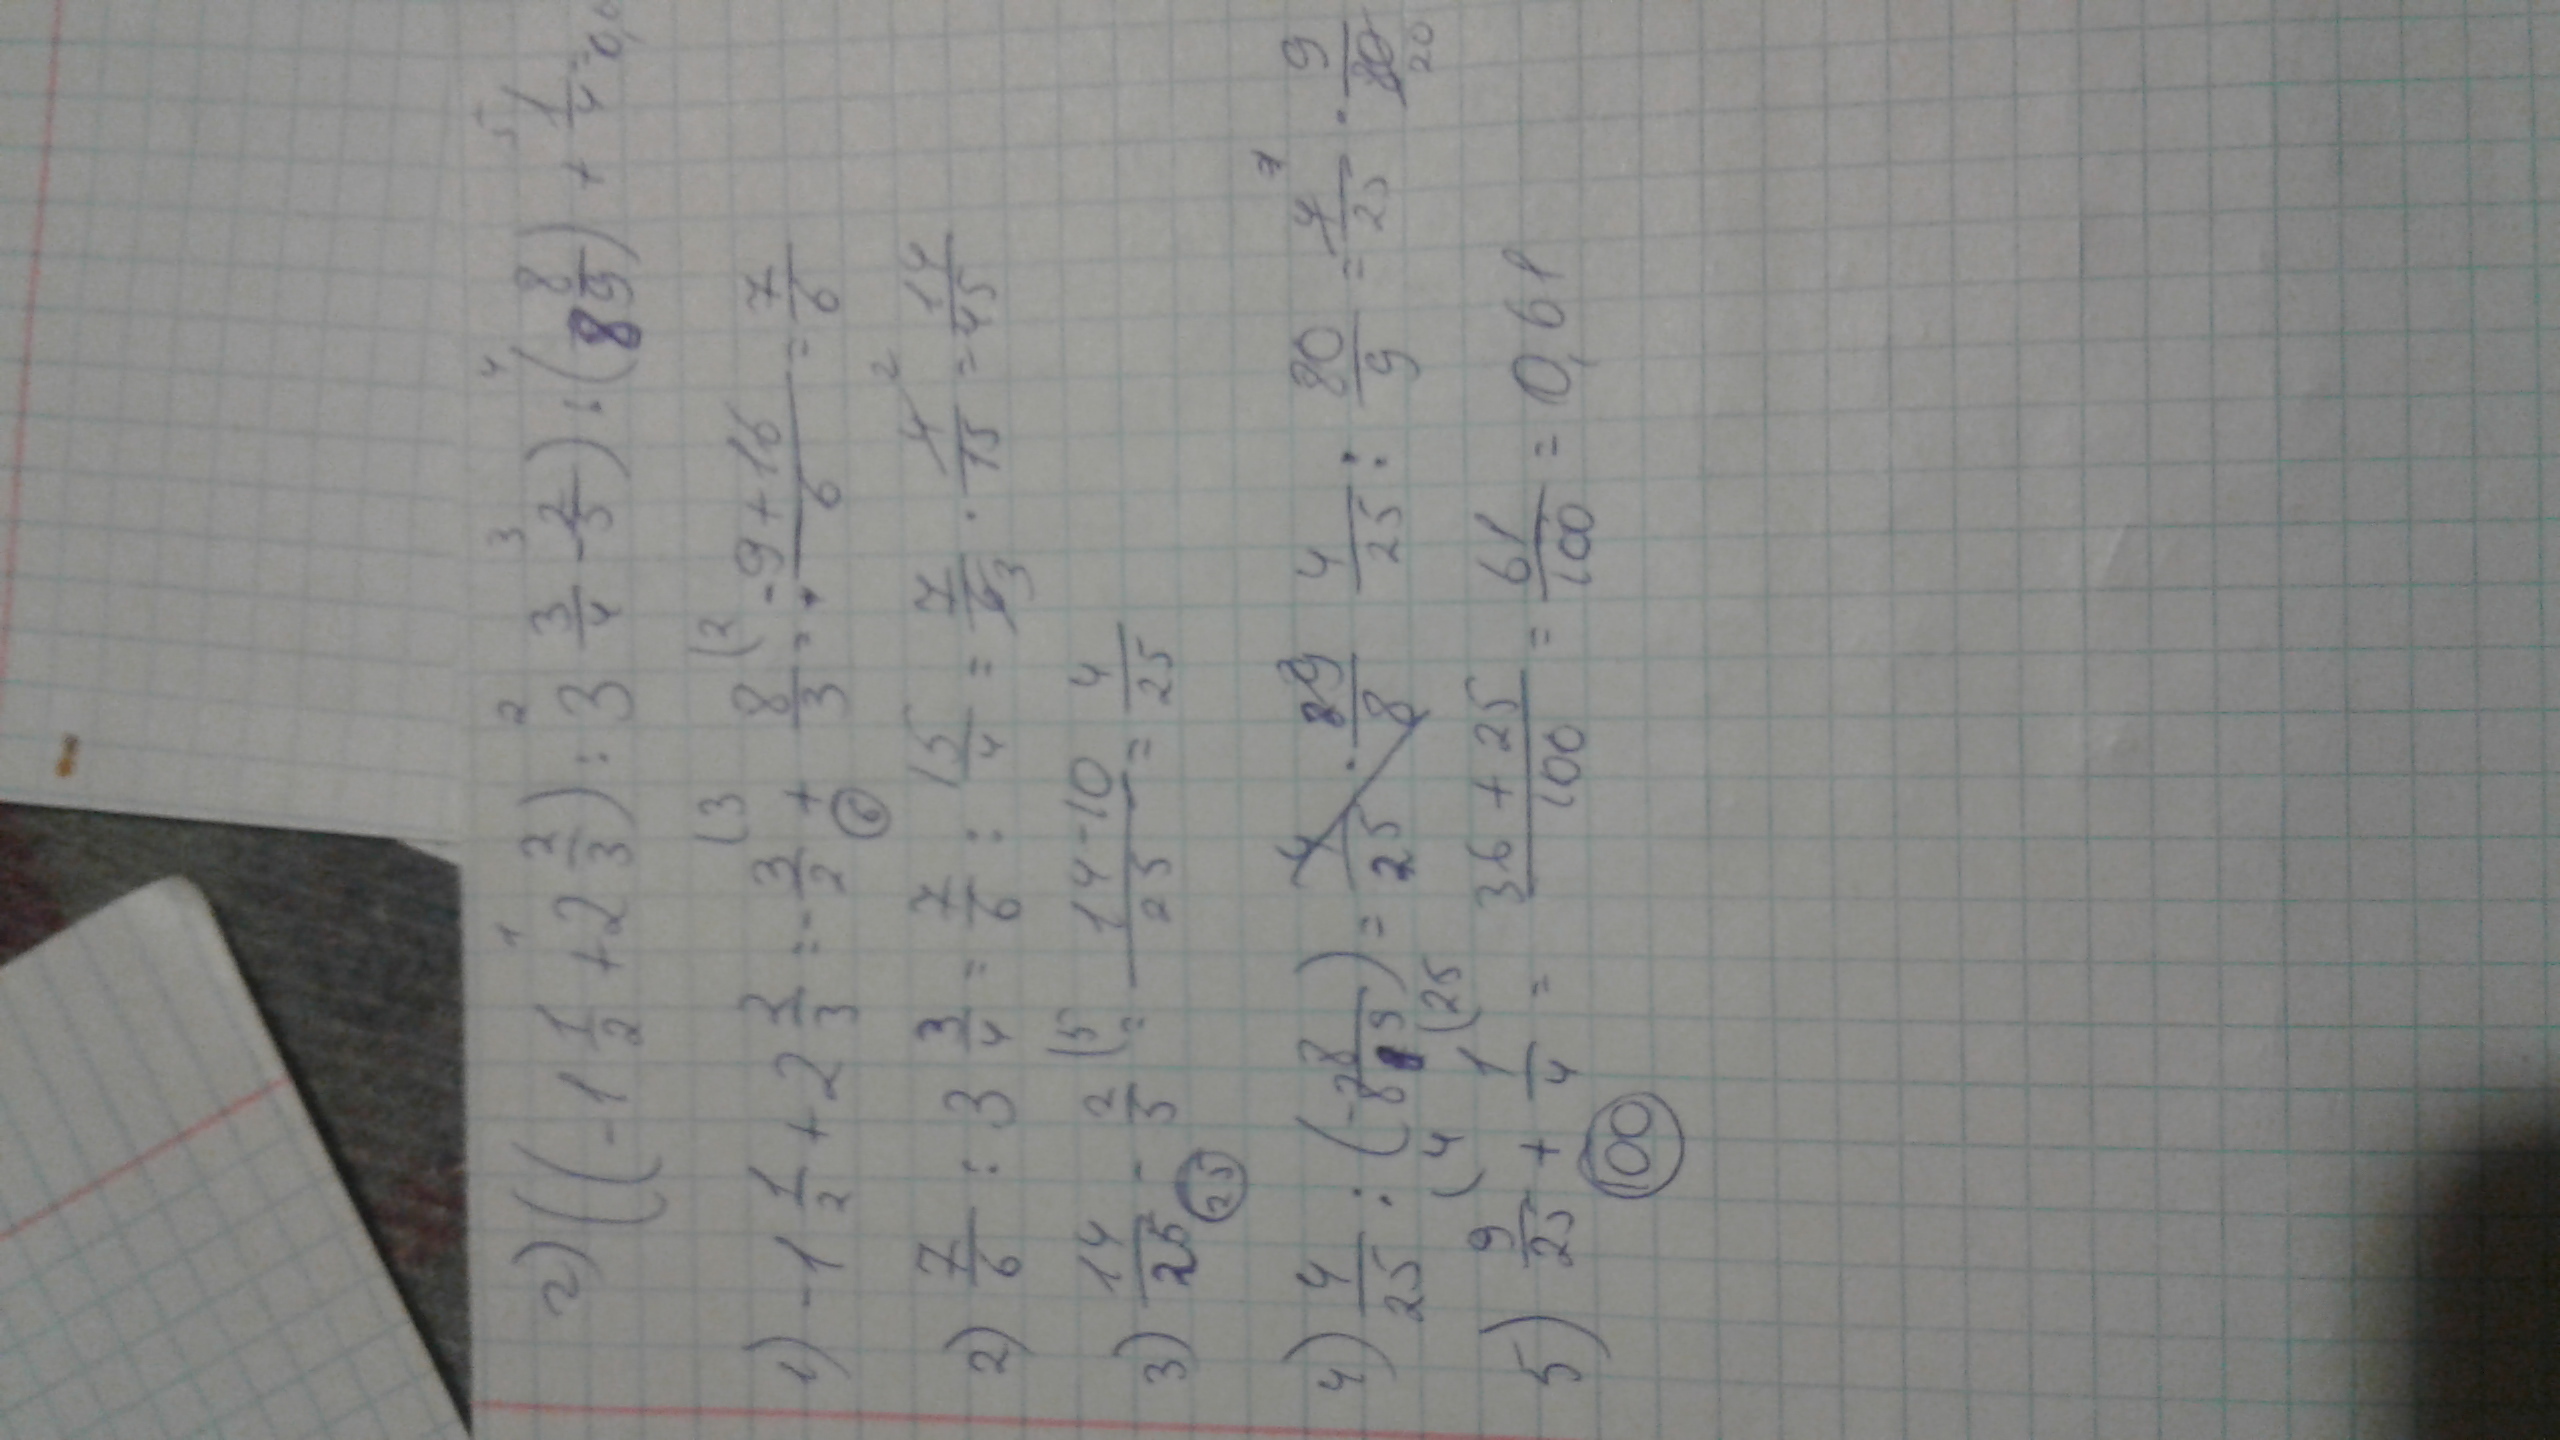 г) ((-1 1/2 + 2 2/3) : 3 3/4 - 2/5) : (8 8/9) + 1/4 = 0,
1) -1 1/2 + 2 2/3 = -3/2 + 8/3 = (-9+16)/6 = 7/6
2) 7/6 : 3 3/4 = 7/6 : 15/4 = 7/6 · 4/15 = 14/45
3) 14/25 - 2/5 = (14-10)/25 = 4/25
4) 4/25 : ( ) = 4/25 · 89/8 4/25 : 80/9 = 4/25 · 9/80
5) 9/25 + 1/4 = (36+25)/100 = 61/100 = 0,61